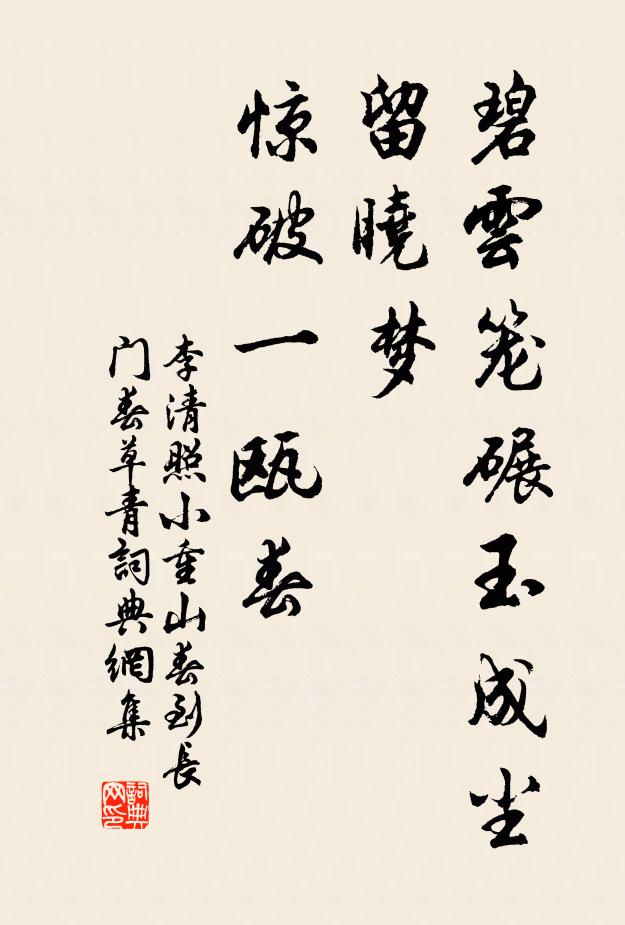 碧雲笼碾玉成尘
留曉梦
惊破一瓯春
李清照小重山春到長
门春草青詞典網集
詞典
网印